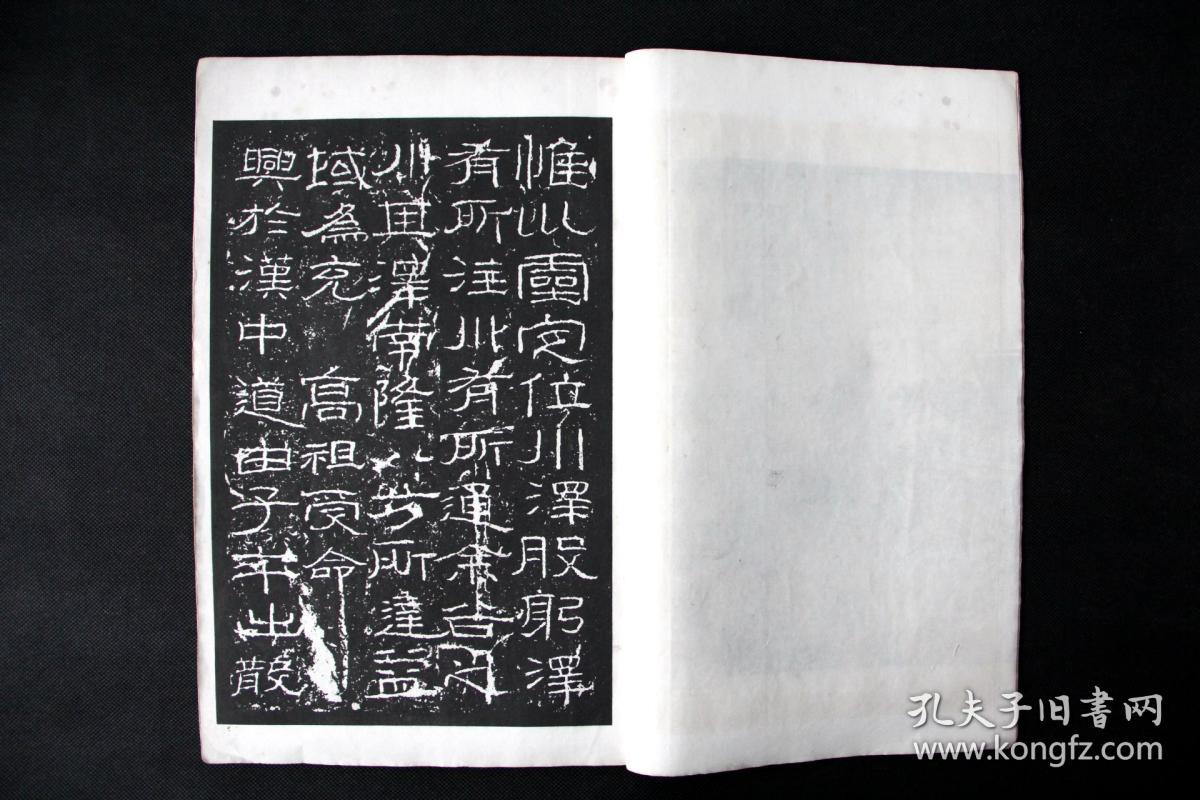 惟巛靈定位川澤股躬澤
有所注川有所通余谷之
川其澤南隆八方所達益
域為充　高祖受命
興於漢中道由子午出散
孔夫子旧書网
www.kongfz.com